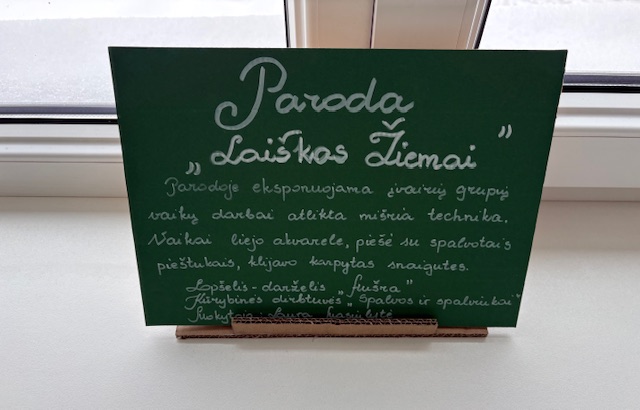 Paroda
„Laiškas Žiemai”
Parodoje eksponuojama įvairių grupių
vaikų darbai atlikta mišria technika.
Vaikai liejo akvarele, piešė su spalvotais
pieštukais, klijavo karpytas snaigutes.
Lopšelis-darželis „Aušra"
Kūrybinės dirbtuvės „Spalvos ir spalviukai"
Laura